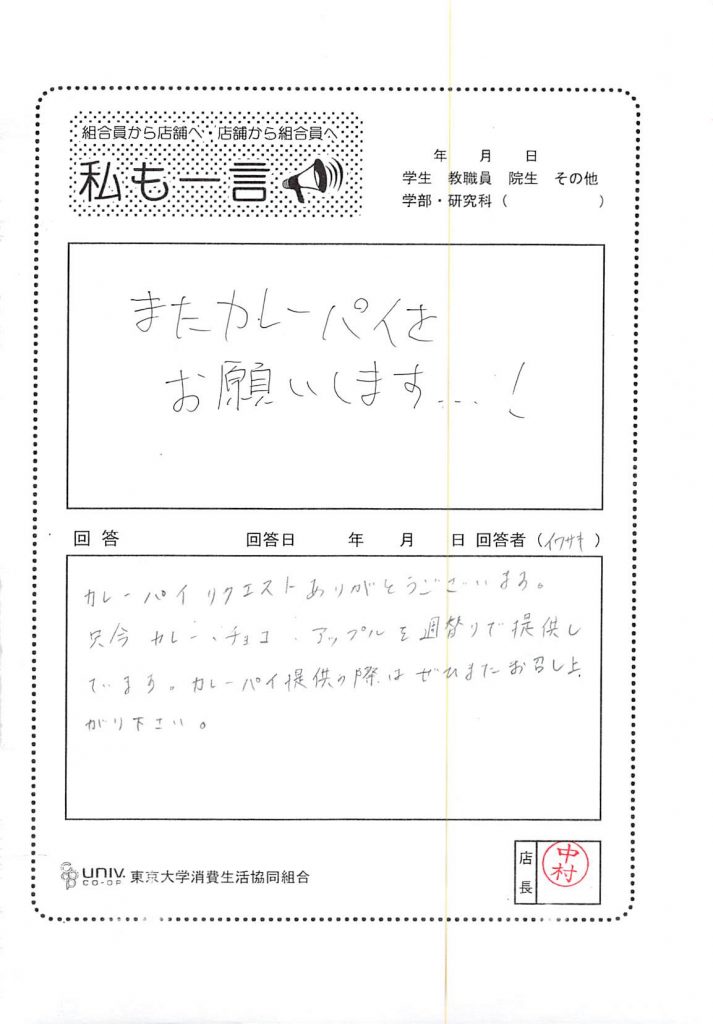 組合員から店舗へ 店舗から組合員へ
私も一言
年 月 日
学生 教職員 院生 その他
学部・研究科（ ）
またカレーパイを
お願いします…！
回答 回答日 年 月 日 回答者（イワサキ）
カレーパイリクエストありがとうございます。
只今カレー、チョコ、アップルを週替りで提供し
ています。カレーパイ提供の際はぜひまたお召し上
がり下さい。
UNIV. CO-OP 東京大学消費生活協同組合
店長
中村